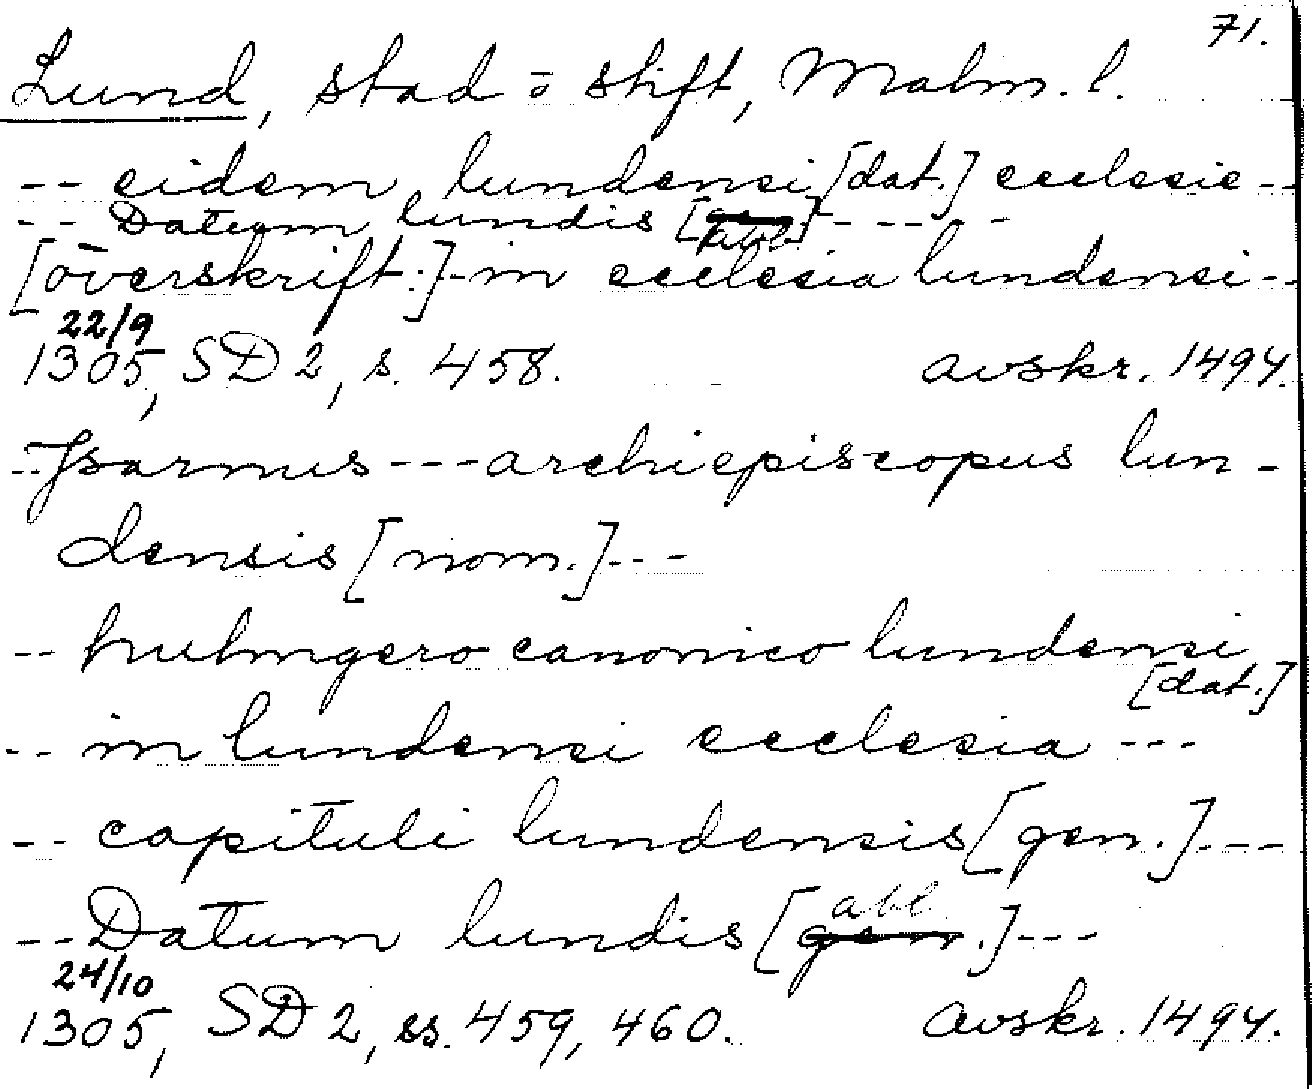 71.
Lund, stad o stift, Malm. l.
-- eidem lundensi [dat.] ecclesie --
-- Datum lundis [abl.] -----
[överskrift:]- in ecclesia lundensi--
22/9
1305, SD 2, s. 458. avskr. 1494.
-- Jsarnus --- archiepiscopus lun-
densis [nom.] ---
-- hulmgero canonico lundensi
[dat.]
-- in lundensi ecclesia ---
-- capituli lundensis [gen.] ---
-- Datum lundis [gen. abl.] ---
24/10
1305, SD 2, ss. 459, 460. avskr. 1494.